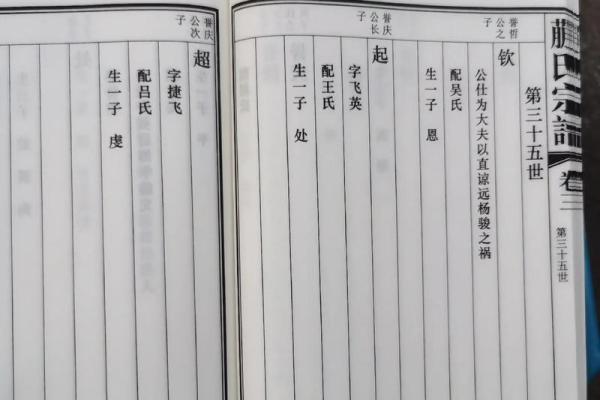 蒯氏宗譜 卷三 第三十五世
第三十五世
誉哲公之子
钦
公仕为大夫以直谅远杨骏之祸
配吴氏
生一子 恩
誉庆公长子
起
字飞英
配王氏
生一子 处
誉庆公次子
超
字捷飞
配吕氏
生一子 虔